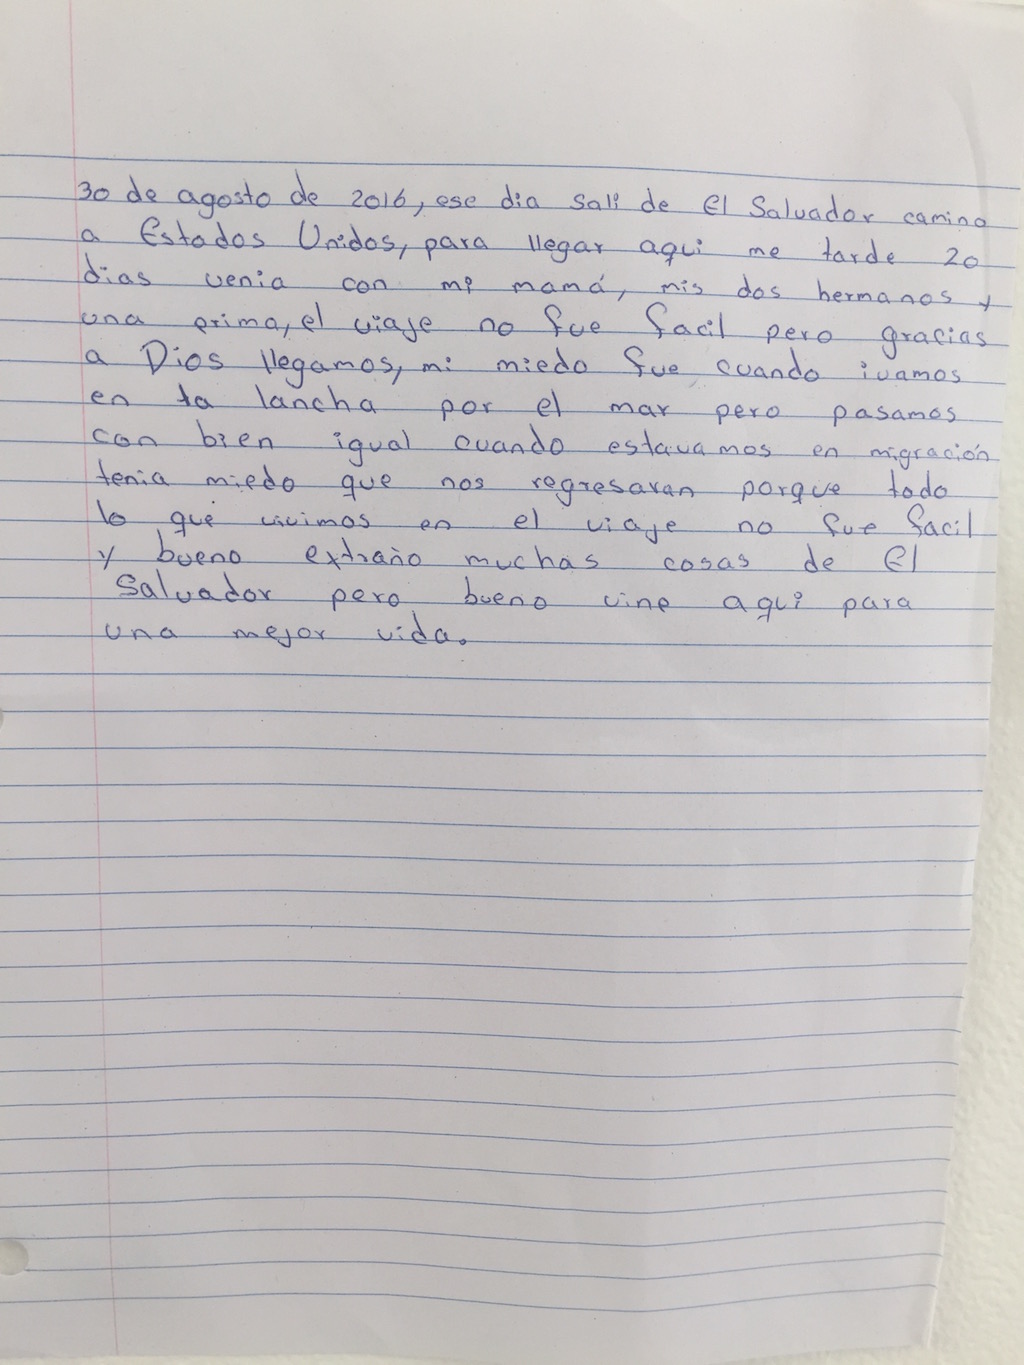 30 de agosto de 2016, ese dia sali de El Salvador camino
a Estados Unidos, para llegar aqui me tarde 20
dias venia con mi mamá, mis dos hermanos y
una prima, el viaje no fue facil pero gracias
a Dios llegamos, mi miedo fue cuando ivamos
en la lancha por el mar pero pasamos
con bien igual cuando estavamos en migración
tenia miedo que nos regresaran porque todo
lo que vivimos en el viaje no fue facil
y bueno extraño muchas cosas de El
Salvador pero bueno vine aqui para
una mejor vida.